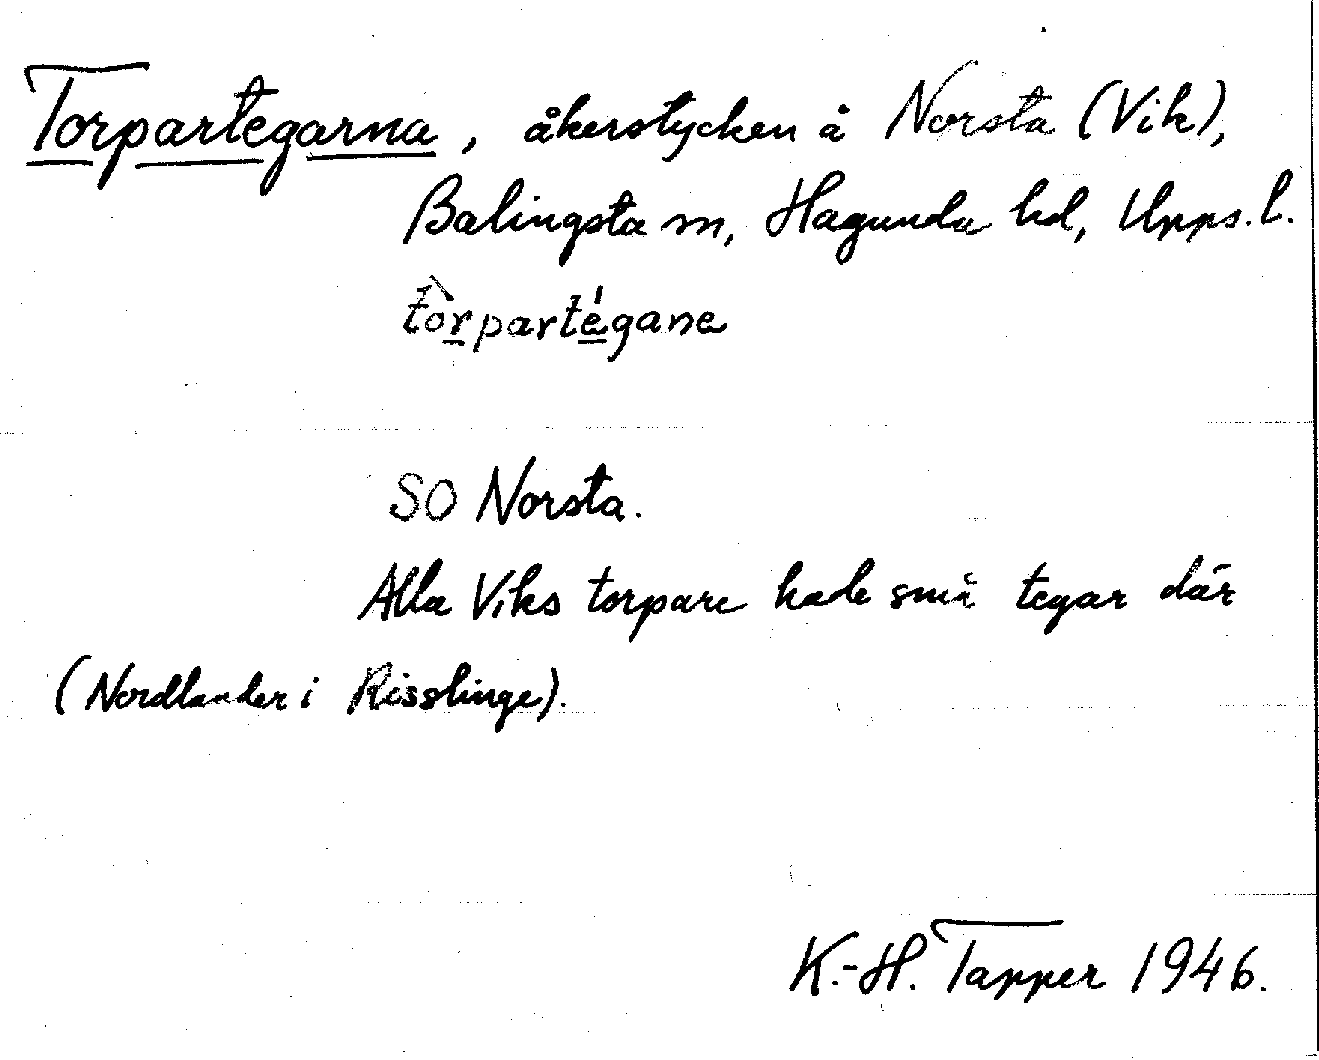 Torpartegarna, åkerstycken å Norsta (Vik),
Balingsta sn, Hagunda hd, Upps. l.
tòrpartégane
SO Norsta.
Alla Viks torpare hade små tegar där
(Nordlander i Risslinge).
K.-H. Tapper 1946.